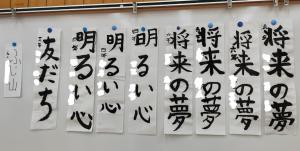 将来の夢
将来の夢
将来の夢
将来の夢
明るい心
明るい心
明るい心
友だち
ふじ山